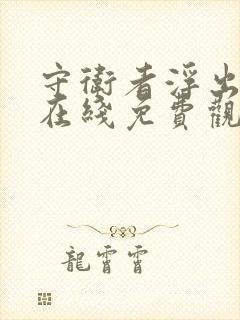 守衛者浮出
在綫免費觀
龍霄霄